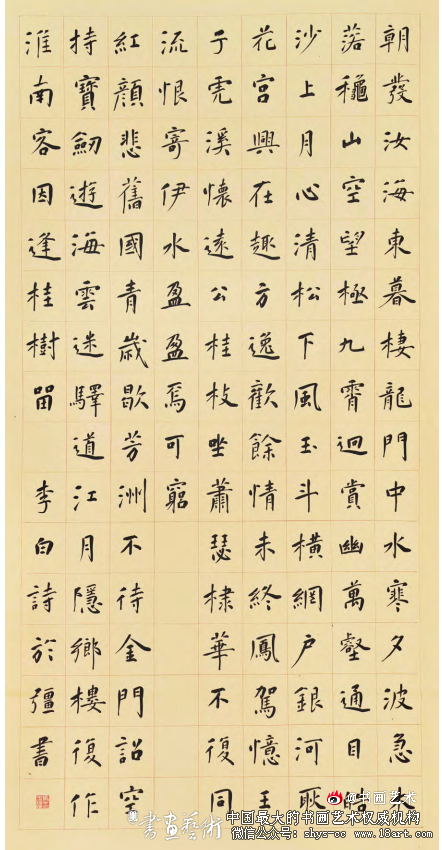 朝發汝海東暮棲龍門中水寒夕波急木
落穐山空望極九霄迥賞幽萬壑通目皓
沙上月心清松下風玉斗橫網户銀河耿
花宮興在趣方逸歡餘情未終鳳駕憶王
子虎溪懷遠公桂枝坐蕭瑟棣華不復同
流恨寄伊水盈盈焉可窮
紅顏悲舊國青歲歇芳洲不待金門詔空
持寶劒遊海雲迷驛道江月隱鄉樓復作
淮南客因逢桂樹留 李白詩於彊書
@书画艺术
書畫藝術
中国最大的书画艺术权威机构
微信公众号: shys-cc www.18art.com